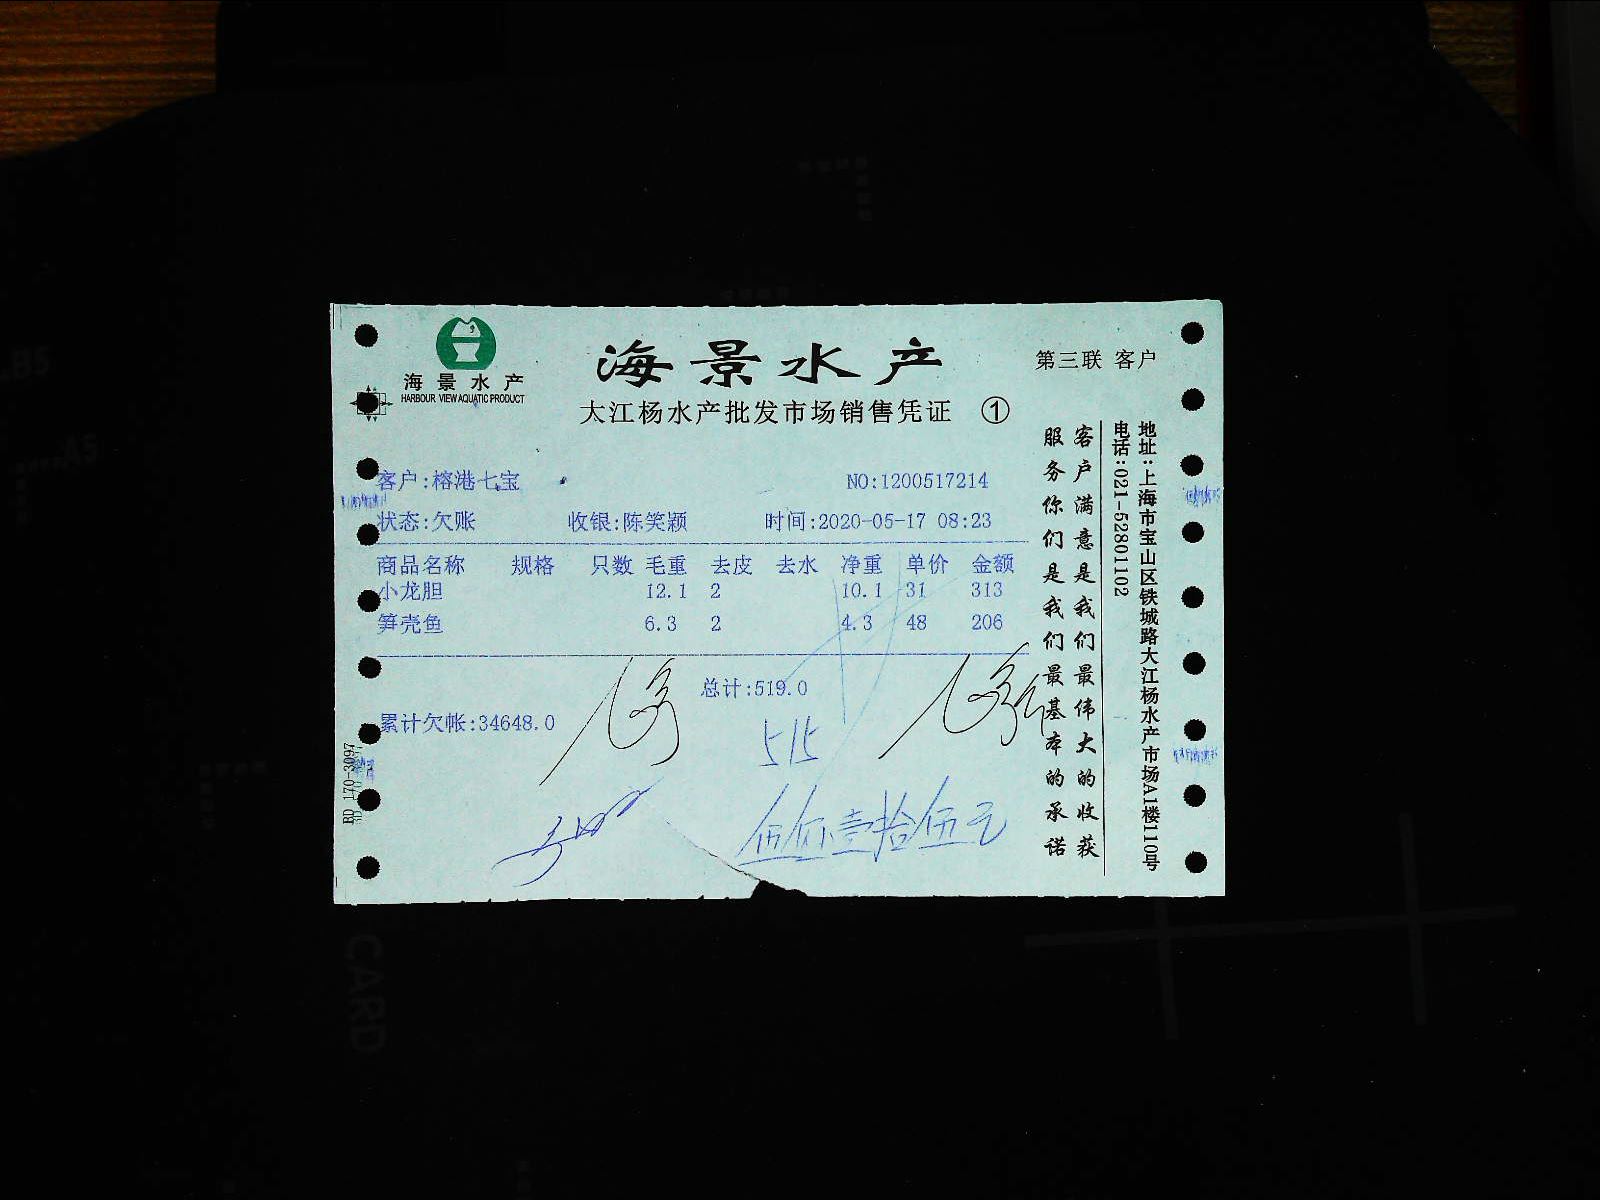 海景水产
HARBOUR VIEW AQUATIC PRODUCT
海景水产
大江杨水产批发市场销售凭证 ①
第三联 客户
客户:榕港七宝 NO:1200517214
状态:欠账 收银:陈笑颖 时间:2020-05-17 08:23
商品名称 规格 只数 毛重 去皮 去水 净重 单价 金额
小龙胆 12.1 2 10.1 31 313
笋壳鱼 6.3 2 4.3 48 206
总计:519.0
累计欠帐:34648.0
515
伍佰壹拾伍元
客户满意是我们最伟大的收获
服务你们是我们最基本的承诺
地址:上海市宝山区铁城路大江杨水产市场A1楼110号
电话:021-52801102
BD 170-3097
B5
A5
CARD